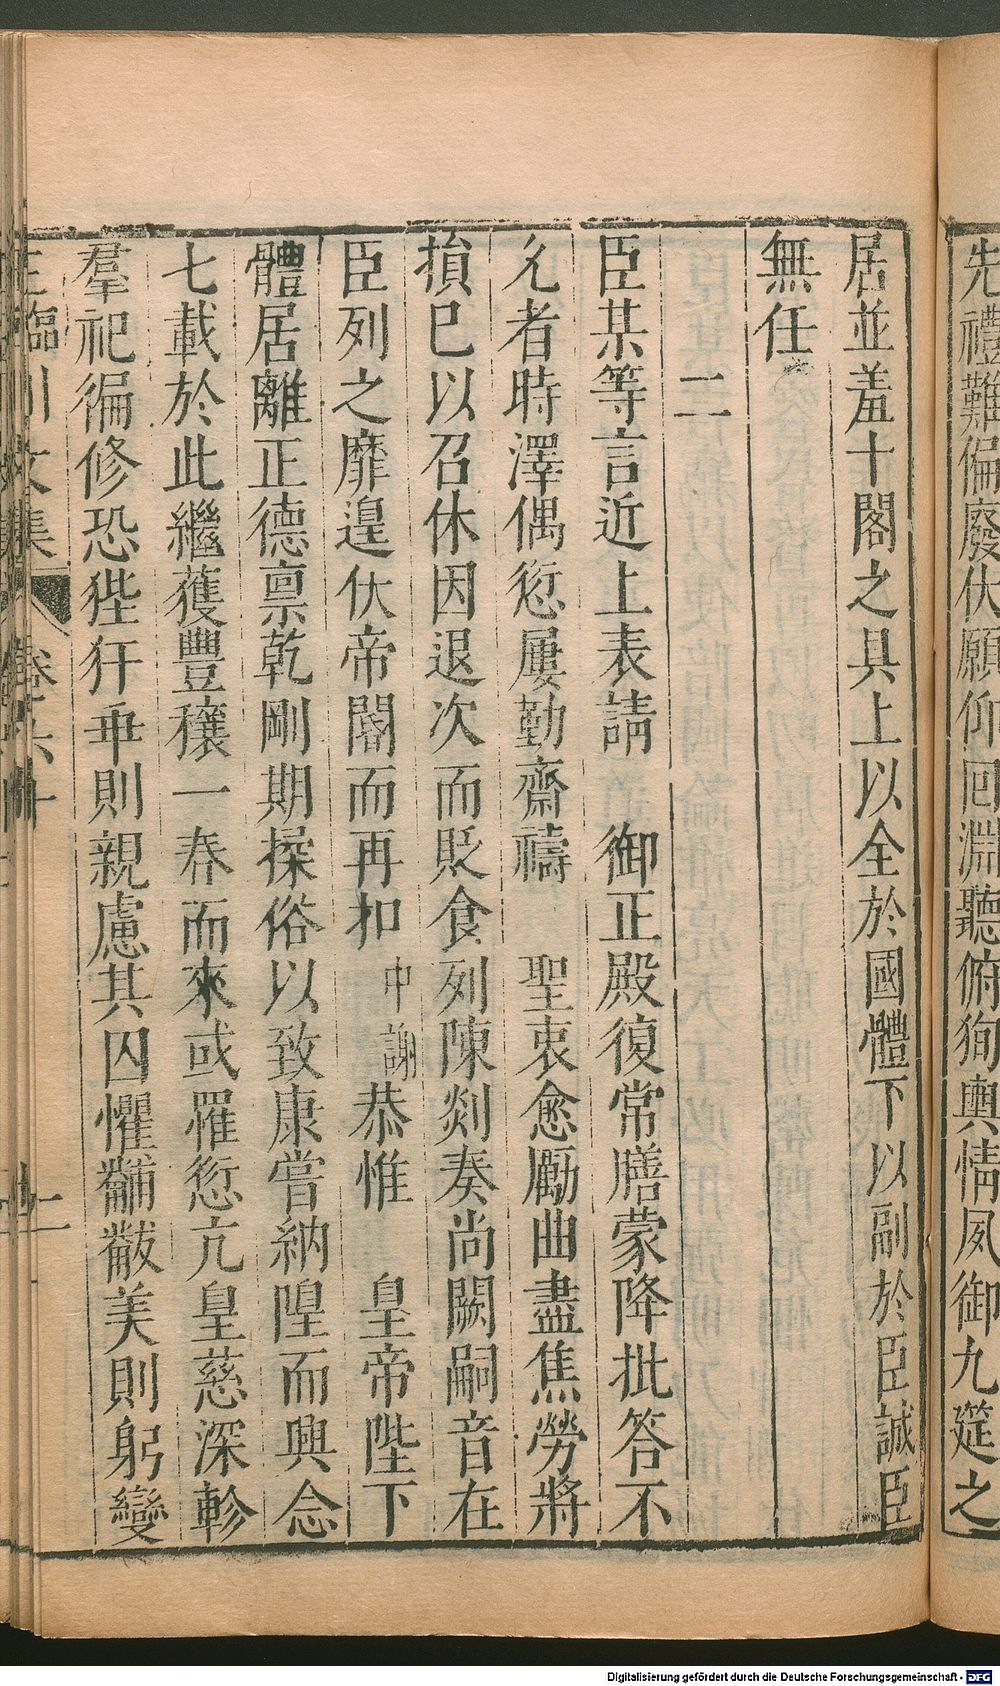 先禮難偏廢伏願仰回淵聽俯狥輿情夙御九筵之
居並羞十閣之具上以全於國體下以副於臣誠臣
無任
二
臣某等言近上表請 御正殿復常膳蒙降批答不
允者時澤偶愆屢勤齋禱 聖衷愈勵曲盡焦勞將
損已以召休因退次而貶食列陳剡奏尚闕嗣音在
臣列之靡遑伏帝閽而再扣 中謝恭惟 皇帝陛下
體居離正德禀乾剛期揉俗以致康嘗納隍而興念
七載於此繼獲豐穰一春而來或罹愆亢皇慈深軫
羣祀徧修恐狴犴乖則親慮其囚懼黼黻美則躬變
王臨川文集 卷六十
Digitalisierung gefördert durch die Deutsche Forschungsgemeinschaft - DFG